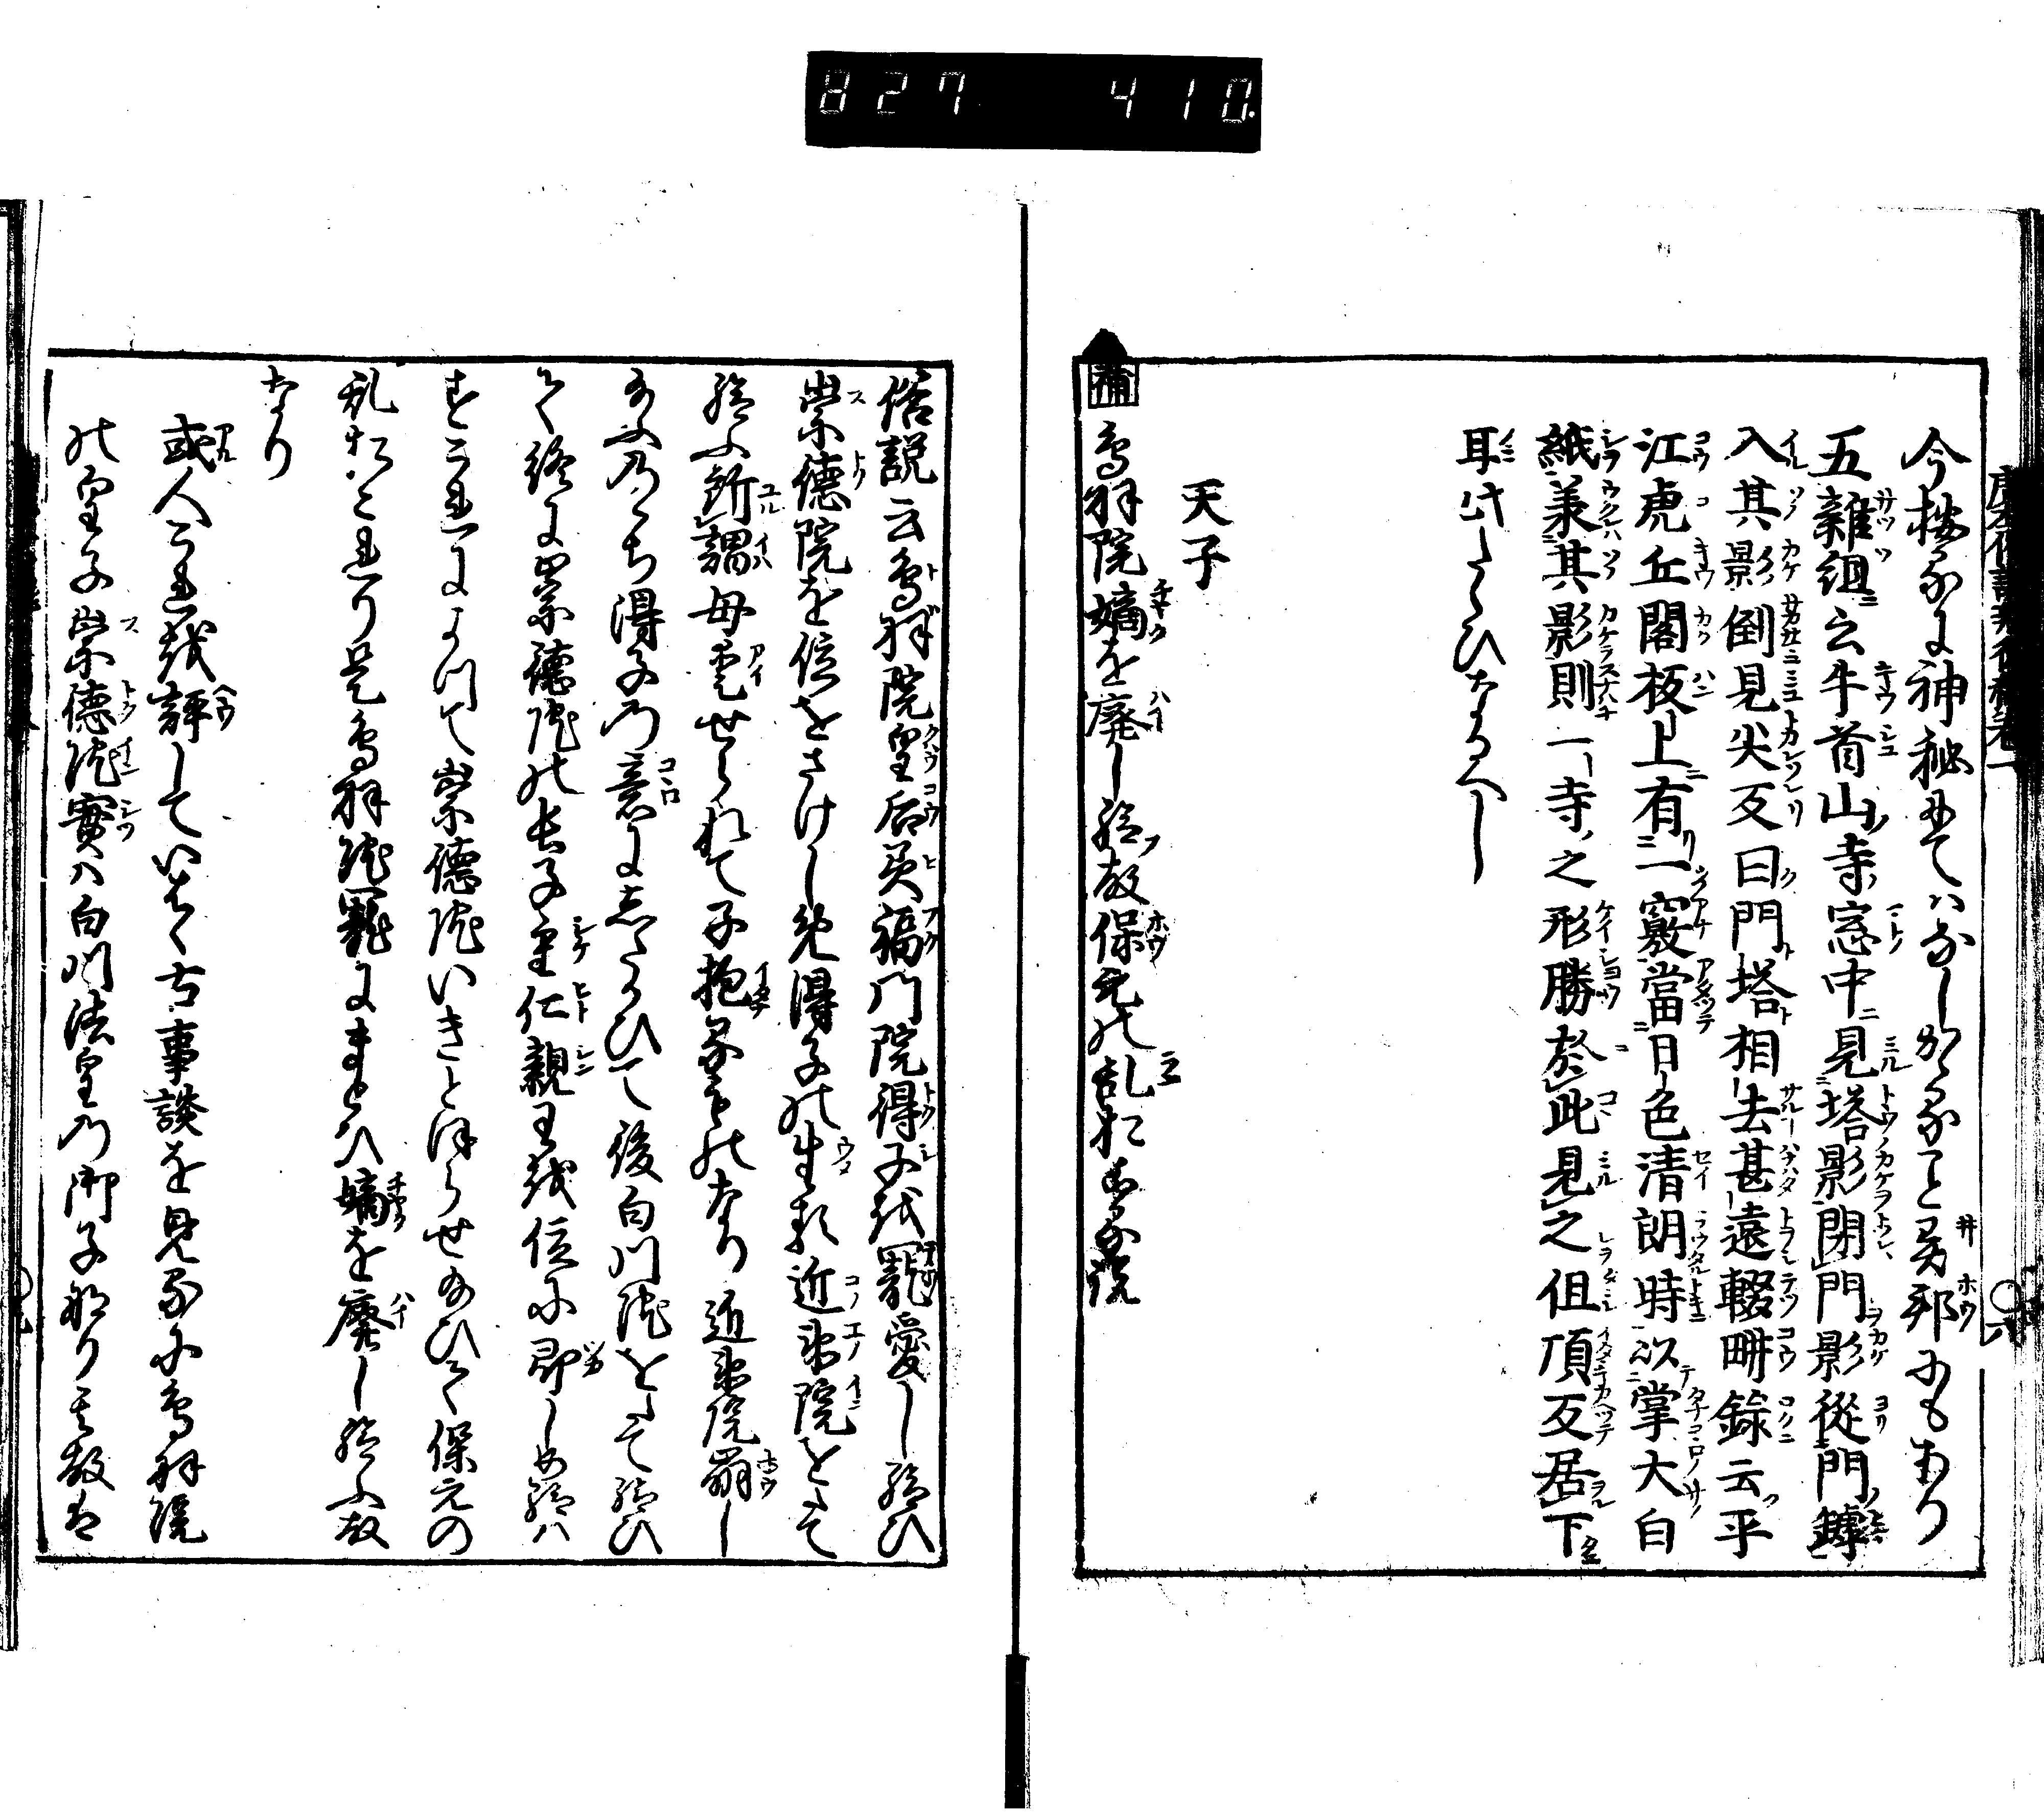 827 410.
今按るに神秘にてハなしかゝること異邦にもあり
五雜組云牛首山寺窓中見塔影閉門影從門罅
入其影倒見尖反曰門塔相去甚遠輟畊錄云平
江虎丘閣板上有一竅當日色清朗時以掌大白
紙兼其影則一寺之形勝於此見之但頂反居下
耳此たぐひなるへし
天子
補 鳥羽院嫡を廃し給ふ故保元の乱おこる説
俗説云鳥羽院皇后美福門院得子を寵愛し給ひ
崇德院を位をさけしめ得子の生る近衛院をたて
給ふ所謂母愛せられて子抱るものなり近衛院崩し
給ふのち得子の意にしたかひて後白川院をたて給ひ
て終に崇德院の長子重仁親王を位に即しめ給ハ
すこれによつて崇德院いきとほらせ給ひて保元の
乱おこれり是鳥羽院寵にまよひ嫡を廃し給ふ故
なり
或人これを評していはく古事談を見るに鳥羽院
の皇子崇德院實ハ白川法皇の御子なり其故は